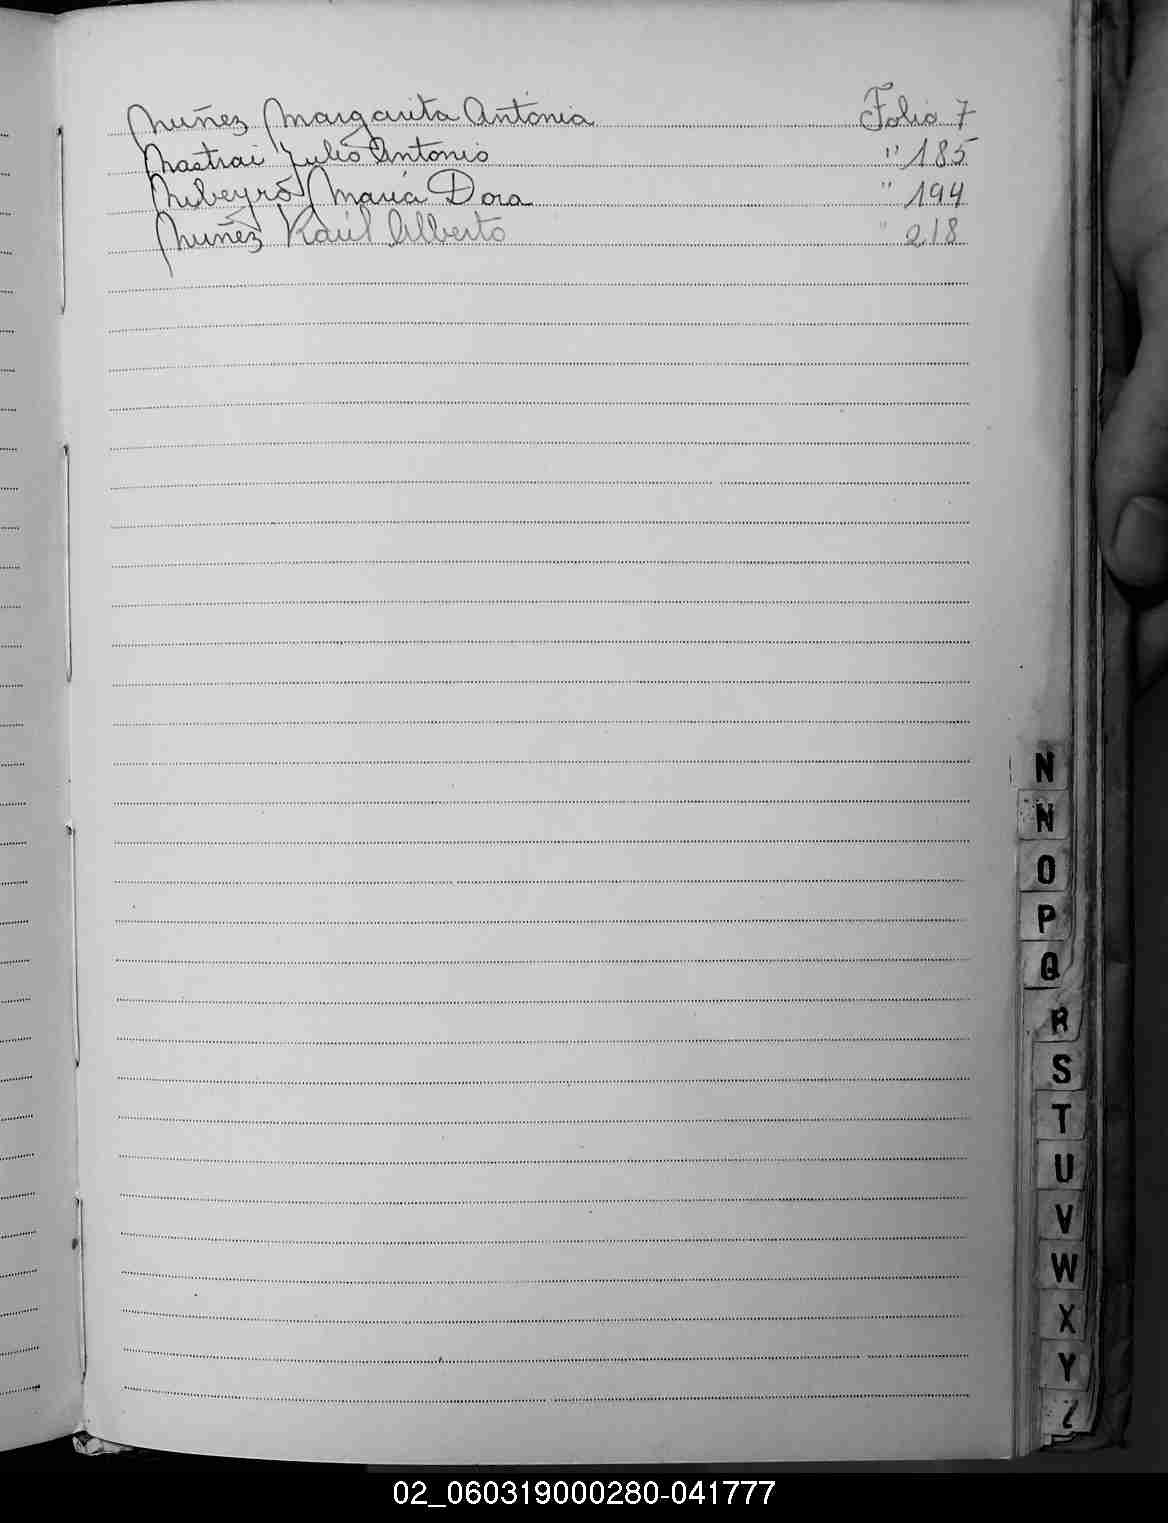 Nuñez Margarita Antonia Folio 7
Nastrai Julio Antonio " 185
Nibeyró María Dora " 194
Nuñez Raúl Alberto " 218
N
N
O
P
Q
R
S
T
U
V
W
X
Y
Z
02_060319000280-041777